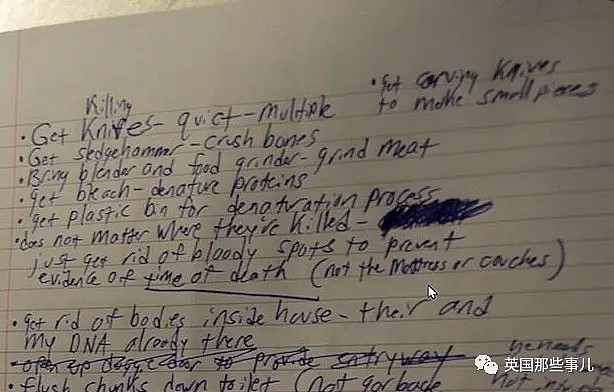 killing
• Get Knifes - quiet - multiple
• get carving knives
to make small pieces
• Get sledgehammer - crush bones
• Bring blender and food grinder - grind meat
• get bleach - denature proteins
• get plastic bin for denaturation process
• does not matter where they're killed -
just get rid of bloody spots to prevent
evidence of time of death (not the mattress or couches)
• get rid of bodies inside house - their and
my DNA already there
to provide entryway
• flush chunks down toilet (not garbage
not my
英国那些事儿